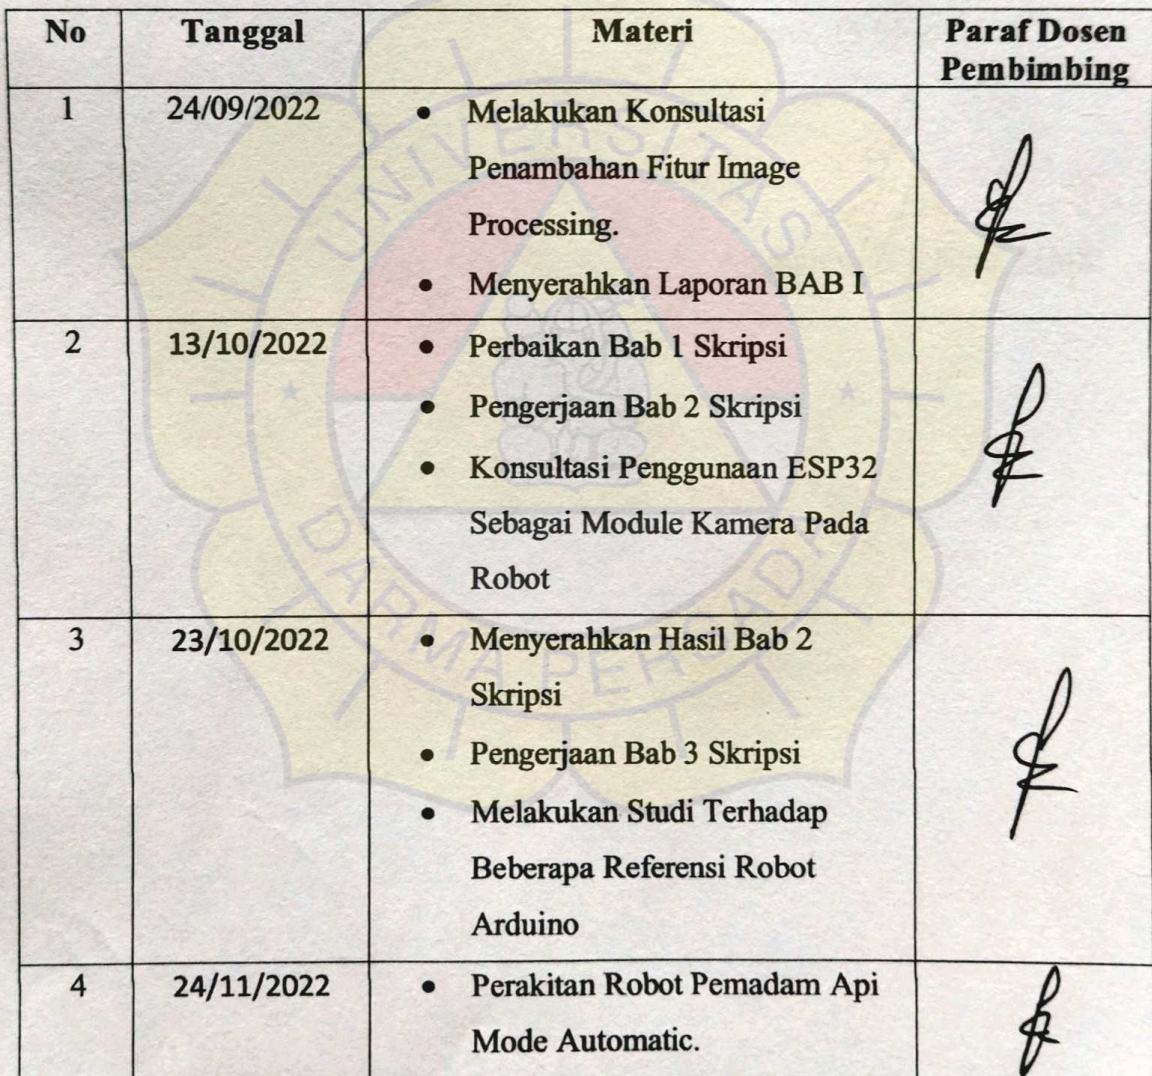 No Tanggal Materi Paraf Dosen
Pembimbing
1 24/09/2022 • Melakukan Konsultasi
Penambahan Fitur Image
Processing.
• Menyerahkan Laporan BAB I
2 13/10/2022 • Perbaikan Bab 1 Skripsi
• Pengerjaan Bab 2 Skripsi
• Konsultasi Penggunaan ESP32
Sebagai Module Kamera Pada
Robot
3 23/10/2022 • Menyerahkan Hasil Bab 2
Skripsi
• Pengerjaan Bab 3 Skripsi
• Melakukan Studi Terhadap
Beberapa Referensi Robot
Arduino
4 24/11/2022 • Perakitan Robot Pemadam Api
Mode Automatic.
UNIVERSITAS
DARMA PERSADA